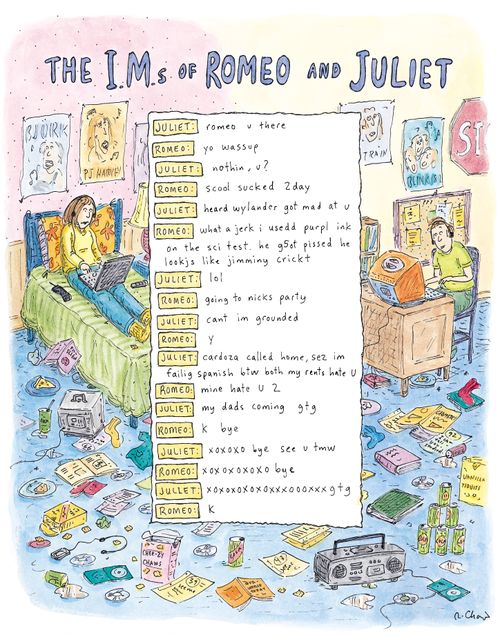 THE I.M.s OF ROMEO AND JULIET
JULIET: romeo u there
ROMEO: yo wassup
JULIET: nothin, u?
ROMEO: scool sucked 2day
JULIET: heard wylander got mad at u
ROMEO: what a jerk i usedd purpl ink
on the sci test. he g5ot pissed he
lookjs like jimminy crickt
JULIET: lol
ROMEO: going to nicks party
JULIET: cant im grounded
ROMEO: y
JULIET: cardoza called home, sez im
failig spanish btw both my rents hate U
ROMEO: mine hate U 2
JULIET: my dads coming gtg
ROMEO: K bye
JULIET: xoxoxo bye see u tmw
ROMEO: xoxoxoxoxo bye
JULIET: xoxoxoxoxoxxxoooxxx gtg
ROMEO: K
BJÖRK
PJ HARVEY
TRAIN
BLINK 182
CHEE-ZY
CHAWS
R. Chast